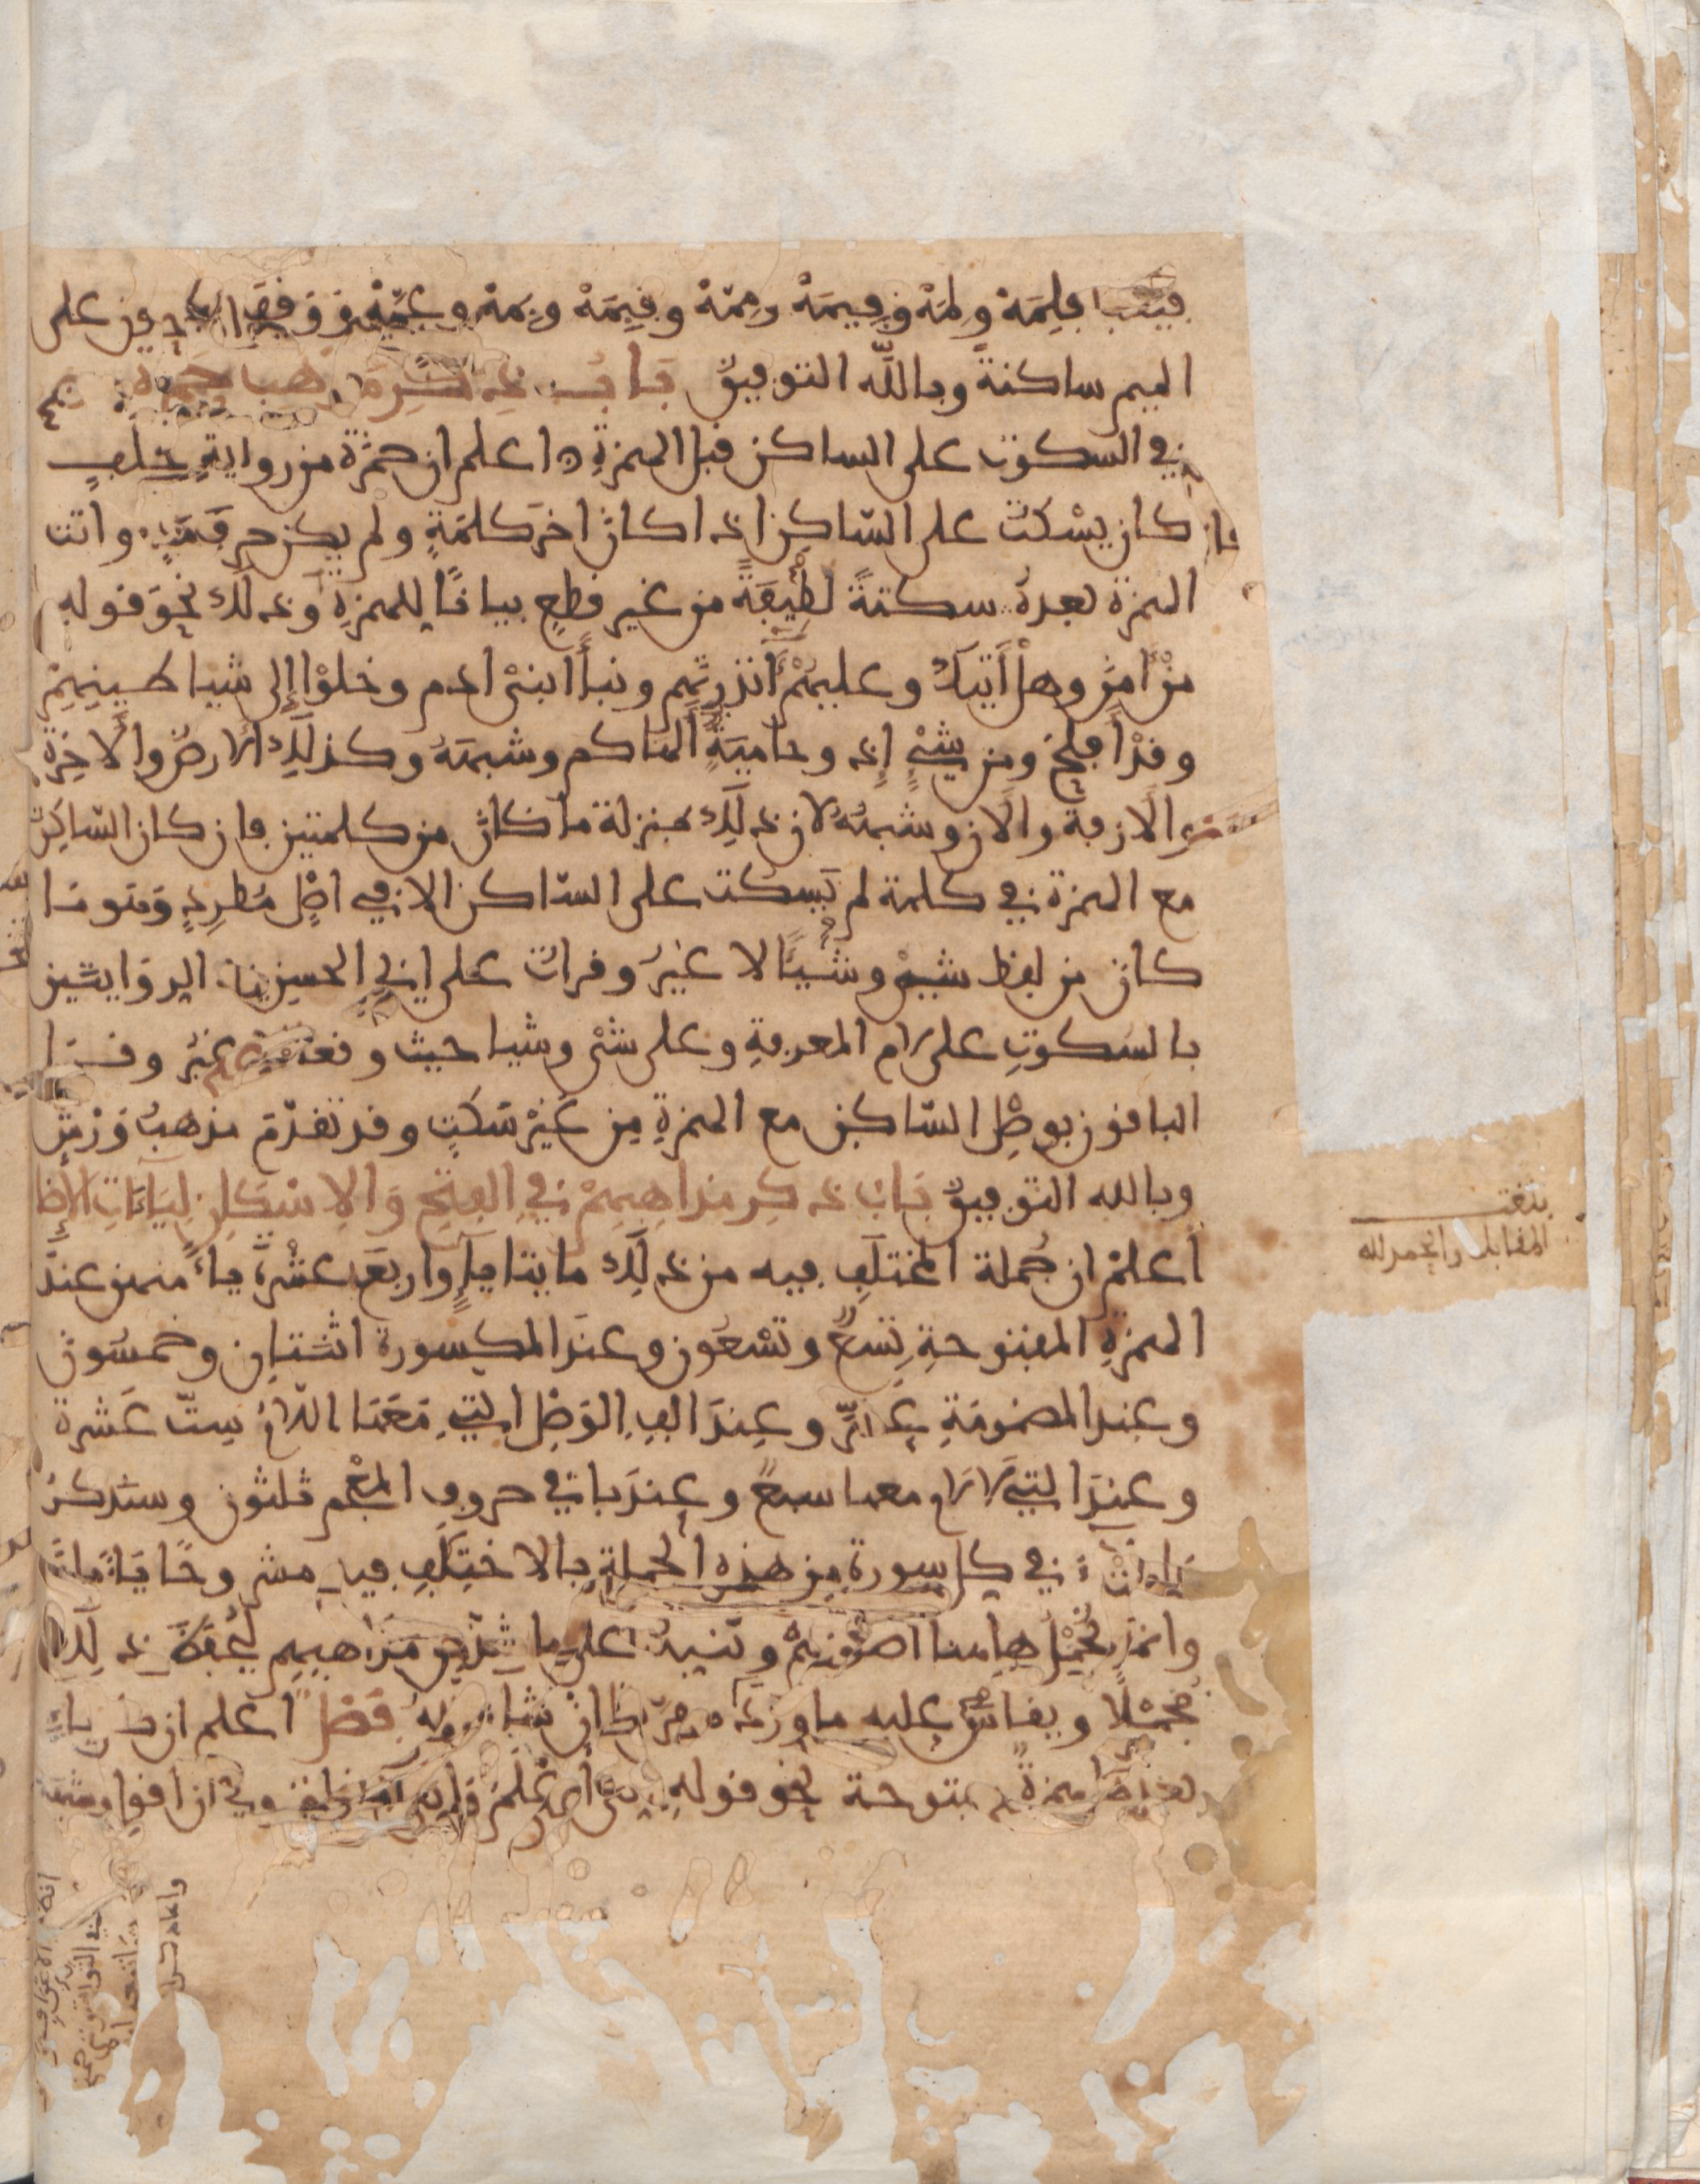 فيقف فلمَهْ ولِمَهْ وفيمَهْ ومِمَّهْ وفبمَهْ وبِمَهْ وعمَّهْ ووقف الباقون على
الميم ساكنةً وبالله التوفيق بابُ ذكر مذهب حمزة
في السكوت على الساكن قبل الهمزةِ اعلم ان حمزة من روايةِ خلفٍ
كان يسْكت على السّاكِن اذا كان اخرَ كلمةٍ ولم يكن حرفَ مدٍّ واتت
الهمزة بعدهُ سكتةً لطيفَةً من غير قطعٍ بيانًا للهمزةِ وذلك نحوَ قوله
مَنْ امن وهل أَتيك وعليهُمْ أَنذرتهم ونبأَ ابنىْ ادم وخلوْا إلى شياطينِهِمْ
وقد أفلح ومن شىْءٍ إذ وحاميةٌ ألهاكم وشبهَهُ وكذلك الارض والاخرة
والازفة والان وشبهُهُ لان ذلك بمنزلة ما كان من كلمتين فان كان السّاكن
مع الهمزة في كلمة لم يَسكت على السّاكن الا في اصْلٍ مطردٍ وهو ما
كان من لفظ شىْء وشيْئًا لا غيْرُ وقرات على ابي الحسن في الروايتين
بالسكوتِ على لام المعرفةِ وعلى شىْء وشيا حيث وقعا لا غيْرُ وقرا
الباقون بوصْلِ السّاكن مع الهمزةِ مِن غيْرِ سَكتٍ وقد تقدّم مذهبُ ورْشٍ
وبالله التوفيق بابُ ذكر مذاهبِهِمْ في الفتح والاسكان لياءات الاضا
أعلمْ ان جُملة المختلَفِ فيه من ذلك مايتا ياءٍ واربعَ عشْرةَ ياءً منهن عند
الهمزةِ المفتوحةِ تسعٌ وتسْعُون وعندَ المكسورة اثنتانِ وخمسُون
وعند المضمومَةِ عشرٌ وعِندَ الِفِ الوَصْلِ التي مَعَهَا اللّامُ ستّ عَشرة
وعندَ التي لا لام معها سبعٌ وعِندَ باقي حروف المعْجم ثلثون وسنذكرُ
في كل سورة مِن هذه الجملة بالاختلَفِ فيه مشروحًا
وانما نُجْمِلُ هاهنا أصُولهُمْ ونُنبِّهُ على ما شذ من مذاهبهم ليُحفظَ ذلك
مُجْمَلًا ويقاسَ عليه ما ورد منه ان شا الله فصل اعلم ان كل ياءٍ
بعدها همزةٌ مفتوحة نحو قوله إنّى أعلمُ
بلغت
المقابلة والحمد لله